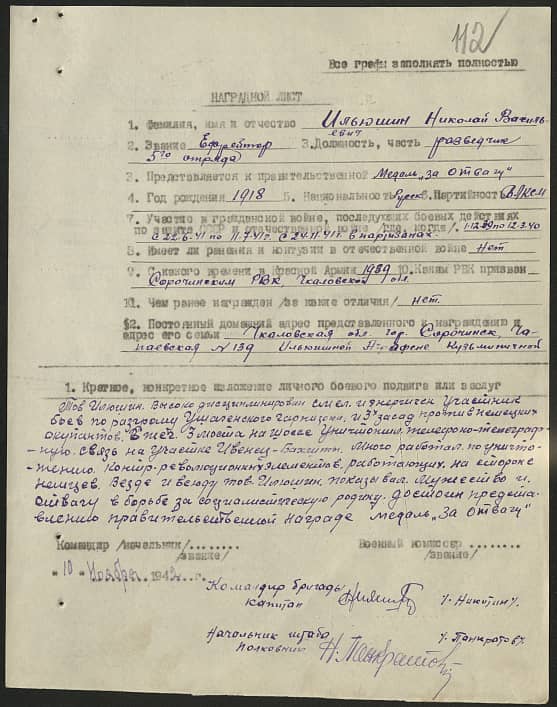 112
Все графы заполнять полностью
НАГРАДНОЙ ЛИСТ
1. Фамилия, имя и отчество Ильюшин Николай Василь-
евич
2. Звание Ефрейтор 3. Должность, часть разведчик
5го отряда
3. Представляется к правительственной Медаль „за Отвагу"
4. Год рождения 1918 5. Национальность Русск. 6. Партийность ВЛКСМ
7. Участие в гражданской войне, последующих боевых действиях
по защите СССР и отечественной войне /где, когда/. по 12.3.40
с 22.6.41 по 11.7.41г. с 24.11.41г в партизанах.
8. Имеет ли ранения и контузии в отечественной войне Нет
9. С какого времени в Красной Армии 1939 10. Каким РВК призван
Сорочинским РВК, Чкаловской обл.
11. Чем ранее награжден /за какие отличия/ Нет.
§2. Постоянный домашний адрес представленного к награждению и
адрес его семьи Чкаловская обл. гор. Сорочинск, Ча-
паевская №139 Ильюшиной Кузьминичной
1. Краткое, конкретное изложение личного боевого подвига или заслуг
Тов Илюшин. Высоко дисциплинирован смел и энергичен Участник
боев по разгрому гарнизона. и 3х засад против немецких
окупантов. Сжег 3 моста на шоссе Уничтожил телефоно-телеграф-
ную связь на участке Ивенец-Бакшты. Много работал по уничто-
жению. Контр-революционных элементов, работающих на стороне
немцев. Везде и всюду тов Илюшин показывал. Мужество и
отвагу в борьбе за социалистическую родину. достоин предста-
влению правительственной награде медаль „За отвагу"
Командир /начальник/ Военный комиссар
/звание/ /звание/
"10" Ноября 1942 г.
Командир бригады
капитан /-Никитин/.
Начальник штаба
Полковник Н. Панкратов /-Панкратов/.